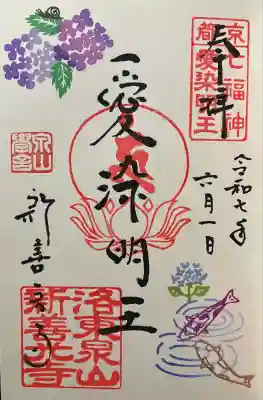 奉拝
京七福神
愛染明王
令和七年
六月一日
愛染明王
新善光寺
洛東泉山
新善光寺